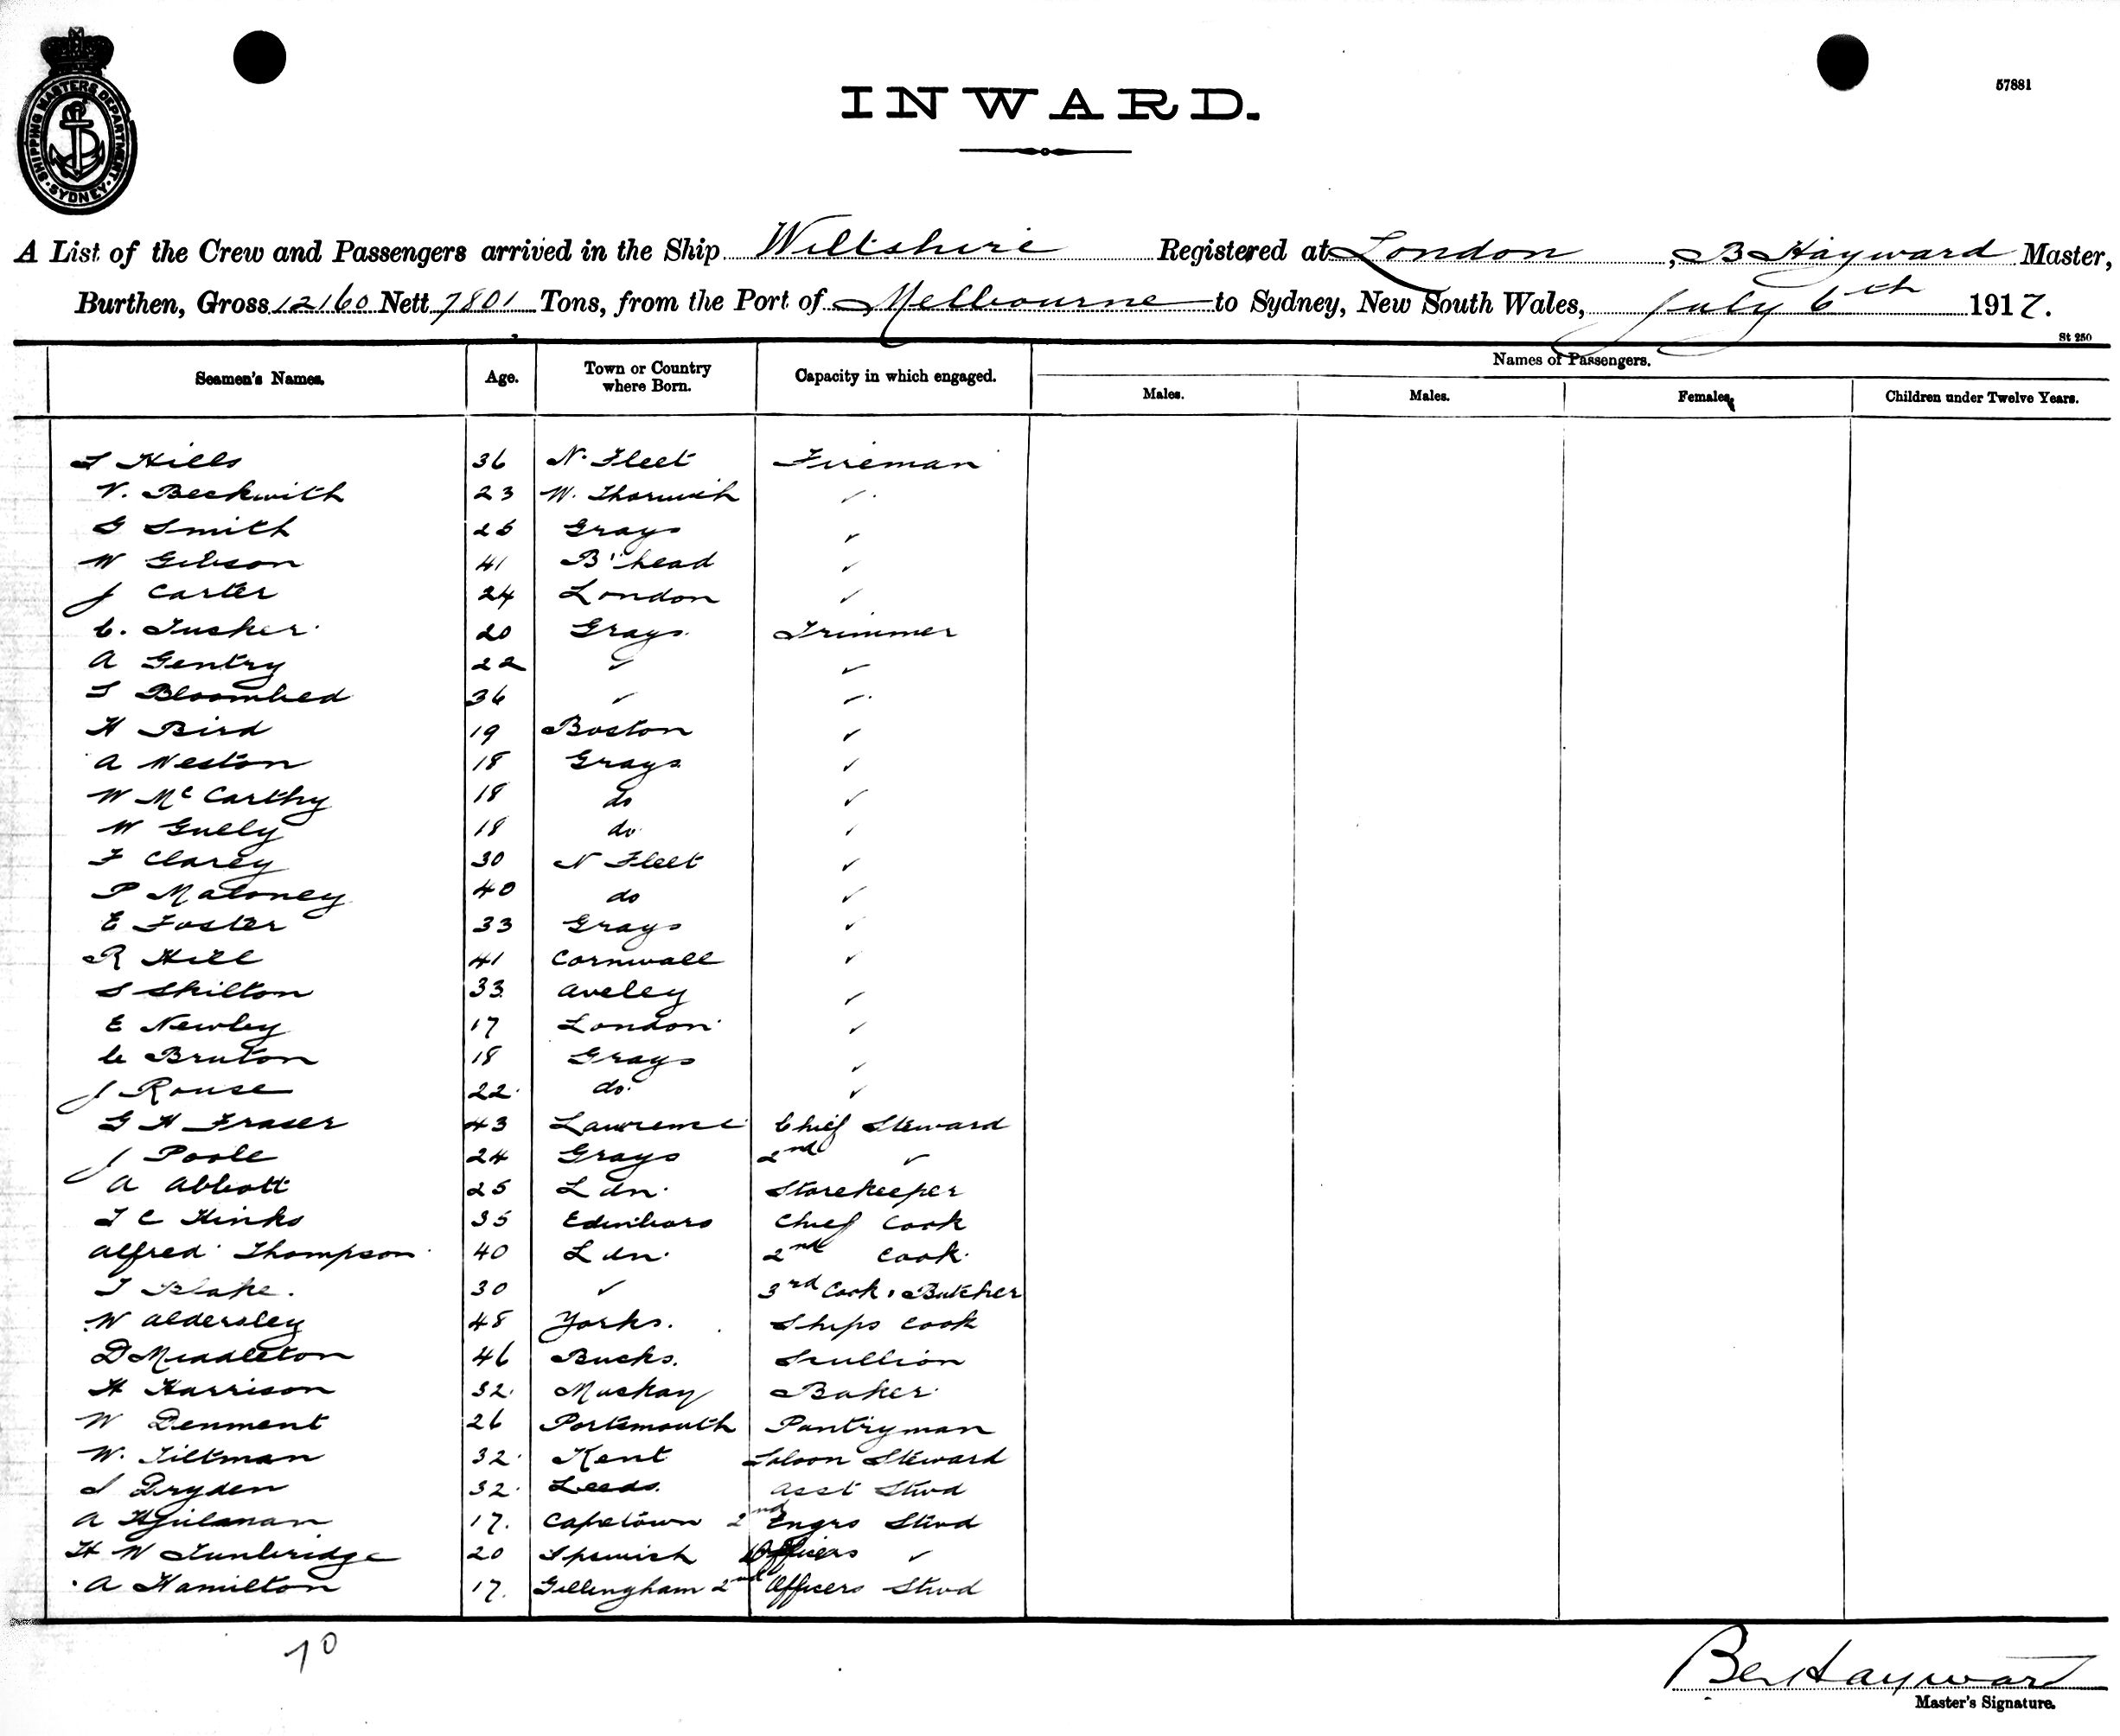 SHIPPING MASTERS DEPARTMENT · SYDNEY ·
57881
INWARD.
A List of the Crew and Passengers arrived in the Ship Wiltshire Registered at London, B Hayward Master,
Burthen, Gross 12160 Nett 7801 Tons, from the Port of Melbourne to Sydney, New South Wales, July 6th 1917.
St 250
Seamen's Names. Age. Town or Country where Born. Capacity in which engaged. Names of Passengers.
Males. Males. Females. Children under Twelve Years.
S Hills 36 N. Fleet Fireman
V. Beckwith 23 W. ✓
G Smith 25 Grays ✓
W Gibson 41 B'head ✓
J Carter 24 London ✓
C. Tusker 20 Grays Trimmer
A Gentry 22 ✓ ✓
S 36 ✓ ✓
H Bird 19 Boston ✓
A Weston 18 Grays ✓
W McCarthy 18 do ✓
W 18 do ✓
F Clarey 30 N Fleet ✓
P Maloney 40 do ✓
E Foster 33 Grays ✓
R Hill 41 Cornwall ✓
S Skilton 33 Aveley ✓
E Newby 17 London ✓
C Bruton 18 Grays ✓
J Rouse 22 do. ✓
G H Fraser 43 Lawrence Chief Steward
J Poole 24 Grays 2nd ✓
A Abbott 25 Ldn. Storekeeper
T C Hinks 35 Chief Cook
Alfred Thompson 40 Ldn. 2nd Cook
T Blake. 30 ✓ 3rd Cook & Butcher
W Aldersley 48 Yorks. Ships Cook
D Middleton 46 Bucks. Scullion
H Harrison 32 Mackay Baker
W Denment 26 Portsmouth Pantryman
W. Tiltman 32 Kent Saloon Steward
S Dryden 32 Leeds. Asst Stwd
A 17. Capetown 2nd Engrs Stwd
H W Tunbridge 20 Ipswich Officers ✓
A Hamilton 17. Gillingham 2nd Officers Stwd
70
Ben Hayward
Master's Signature.